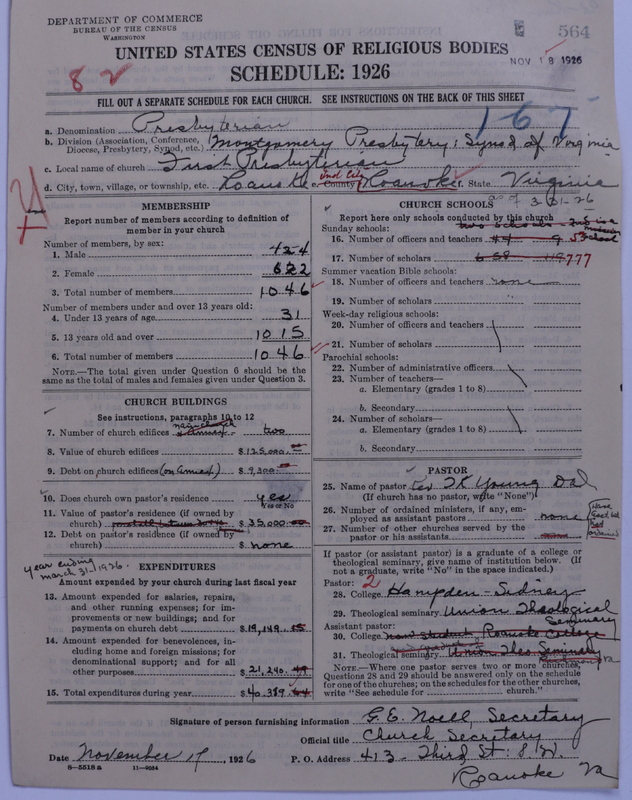 DEPARTMENT OF COMMERCE
BUREAU OF THE CENSUS
WASHINGTON
564
NOV 18 1926
UNITED STATES CENSUS OF RELIGIOUS BODIES
SCHEDULE: 1926
8 2
FILL OUT A SEPARATE SCHEDULE FOR EACH CHURCH. SEE INSTRUCTIONS ON THE BACK OF THIS SHEET
167
a. Denomination Presbyterian
b. Division (Association, Conference, Diocese, Presbytery, Synod, etc.) Montgomery Presbytery; Synod of Virginia
c. Local name of church First Presbyterian
d. City, town, village, or township, etc. Roanoke e. County Ind City Roanoke f. State Virginia
as of 3-31-26
MEMBERSHIP
Report number of members according to definition of
member in your church
Number of members, by sex:
1. Male 424
2. Female 622
3. Total number of members 1046
Number of members under and over 13 years old:
4. Under 13 years of age 31
5. 13 years old and over 1015
6. Total number of members 1046
NOTE.—The total given under Question 6 should be
same as the total of males and females given under Question 3.
CHURCH BUILDINGS
See instructions, paragraphs 10 to 12
7. Number of church edifices main church two
8. Value of church edifices $125,000.
9. Debt on church edifices (on annex) $9,200.
10. Does church own pastor's residence yes
Yes or No
11. Value of pastor's residence (if owned by
church) $35,000.00
12. Debt on pastor's residence (if owned by
church) $none
year ending
march 31-1926.
EXPENDITURES
Amount expended by your church during last fiscal year
13. Amount expended for salaries, repairs,
and other running expenses; for im-
provements or new buildings; and for
payments on church debt $19,149.55
14. Amount expended for benevolences, in-
cluding home and foreign missions; for
denominational support; and for all
other purposes $21,240.49
15. Total expenditures during year $40,389.64
CHURCH SCHOOLS
Report here only schools conducted by this church
Sunday schools: two schools - 2nd is a mission school
16. Number of officers and teachers 44 9 53
17. Number of scholars 658 119 777
Summer vacation Bible schools:
18. Number of officers and teachers none
19. Number of scholars
Week-day religious schools:
20. Number of officers and teachers
21. Number of scholars
Parochial schools:
22. Number of administrative officers
23. Number of teachers—
a. Elementary (grades 1 to 8)
b. Secondary
24. Number of scholars—
a. Elementary (grades 1 to 8)
b. Secondary
PASTOR
25. Name of pastor Rev T K Young
(If church has no pastor, write "None")
26. Number of ordained ministers, if any, em-
ployed as assistant pastors none
27. Number of other churches served by the
pastor or his assistants none
If pastor (or assistant pastor) is a graduate of a college or
theological seminary, give name of institution below. (If
not a graduate, write "No" in the space indicated.)
Pastor: 2
28. College Hampden-Sidney
29. Theological seminary Union Theological Seminary
Assistant pastor:
30. College Roanoke College
31. Theological seminary Union Theo. Seminary
NOTE.—Where one pastor serves two or more churches,
Questions 28 and 29 should be answered only on the schedule
for one of the churches; on the schedules for the other churches,
write "See schedule for church."
Signature of person furnishing information G. E. Noell, Secretary
Official title Church Secretary
Date November 17, 1926 P. O. Address 413 - Third St. S. W.
Roanoke Va
8—5518 a 11—9064